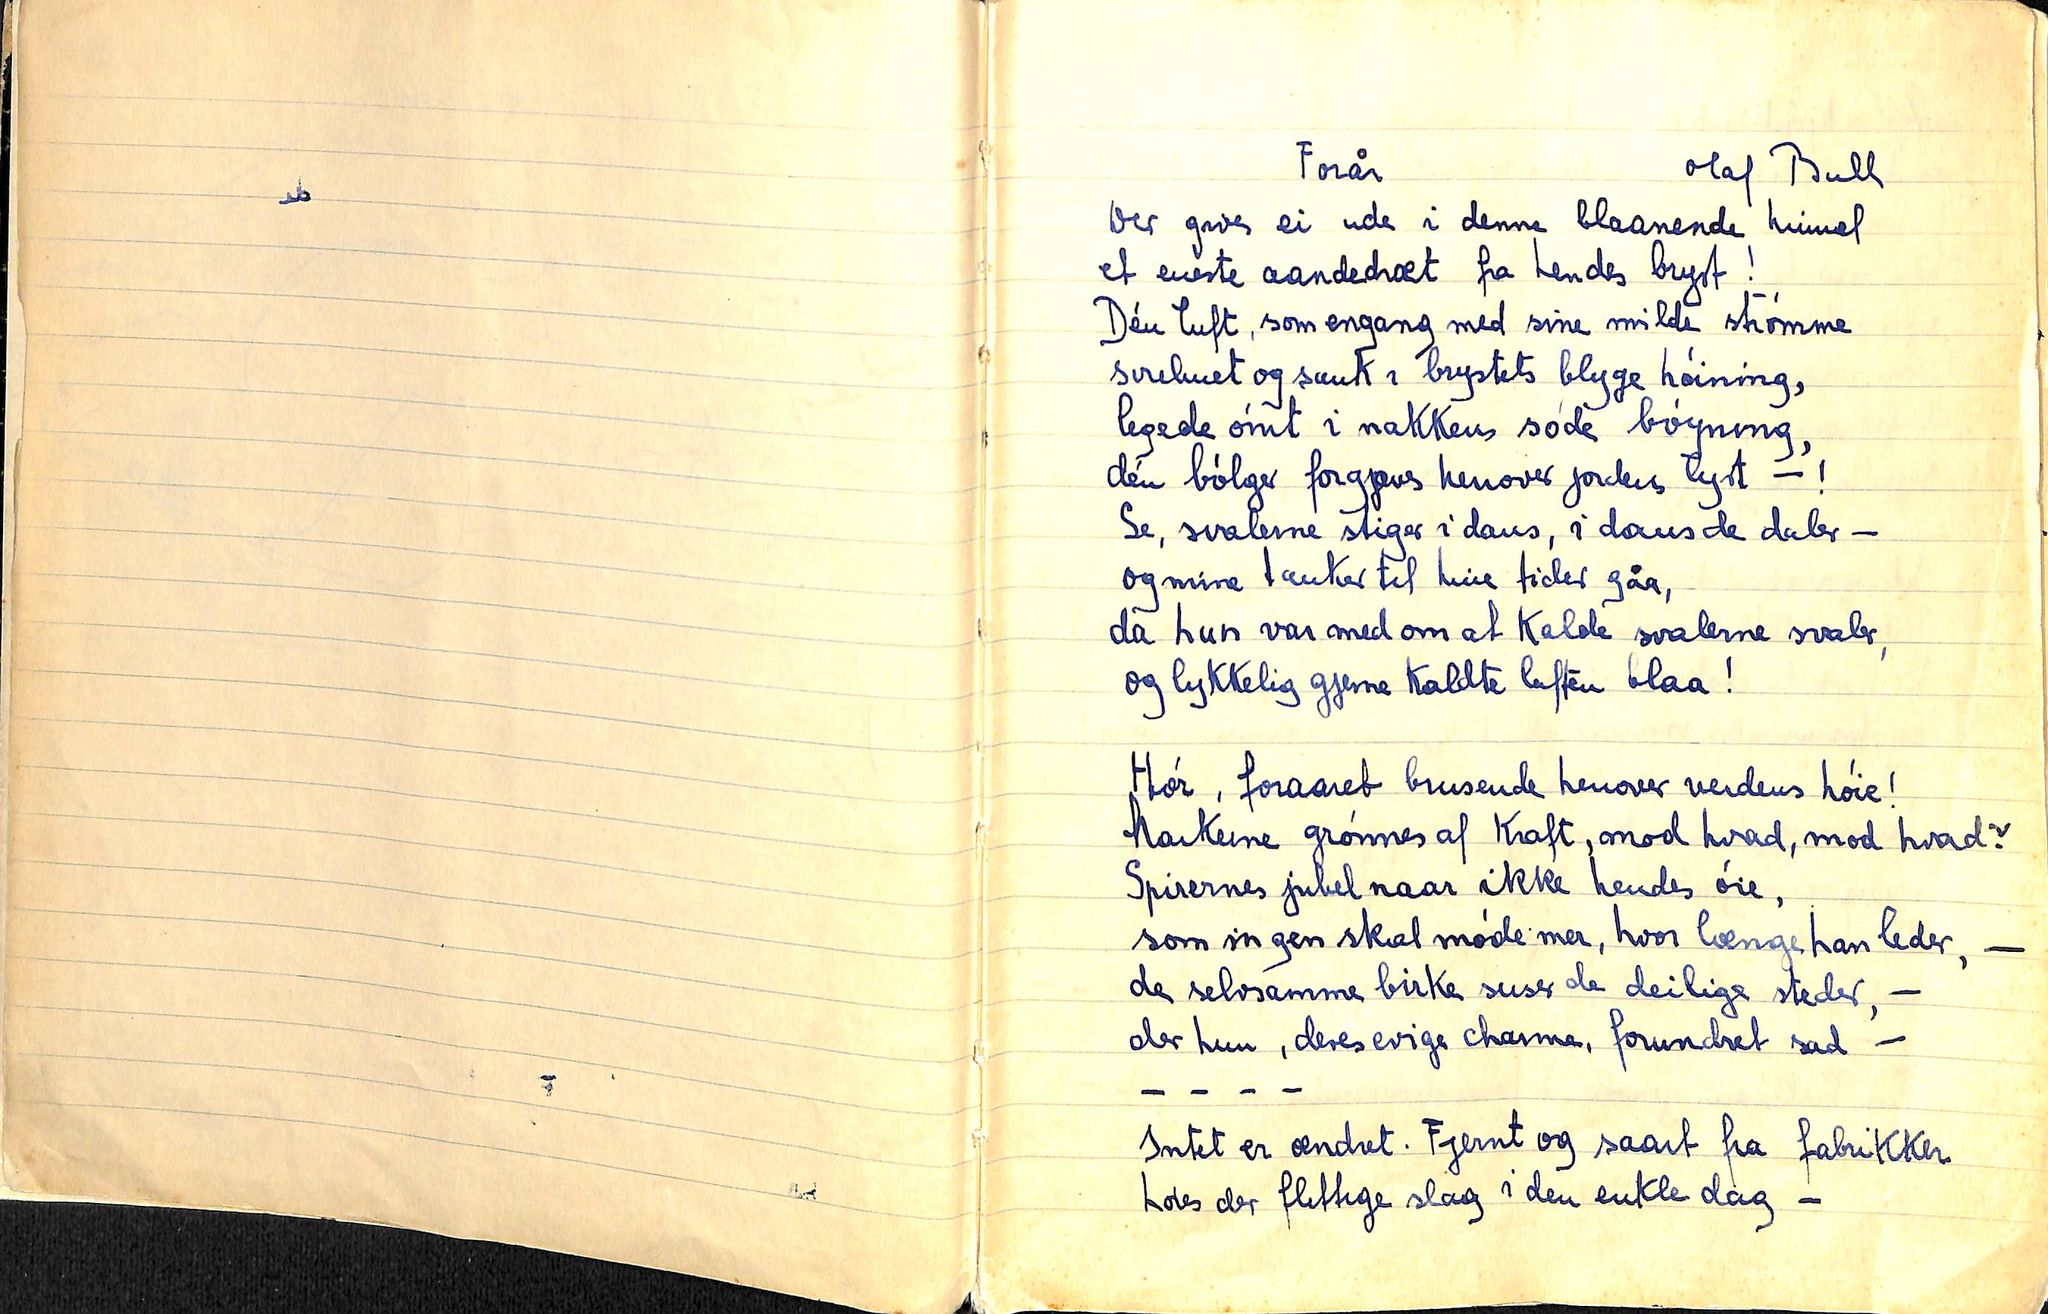 Forår Olaf Bull
Der gives ei ude i denne blaanende himmel
et eneste aandedræt fra hendes bryst!
Dén luft, som engang med sine milde strómme
svelmet og sank i brystets blyge hóining,
legede ómt i nakkens sóde bóyning,
dén bólger forgjæves henover jordens lyst –!
Se, svalerne stiger i dans, i dans de daler –
og mine tanker til hine tider gåa,
da hun var med om at kalde svalerne svaler,
og lykkelig gjerne kaldte luften blaa!
Hór, foraaret brusende henover verdens hóie!
Markerne grónnes af kraft, mod hvad, mod hvad?
Spirernes jubel naar ikke hendes óie,
som ingen skal móde mer, hvor længe han leder, –
de selvsamme birke suser de deilige steder, –
der hun, deres evige charme, forundret sad –
– – – –
Intet er ændret. Fjernt og saart fra fabrikker
hóres der flittige slag i den enkle dag –